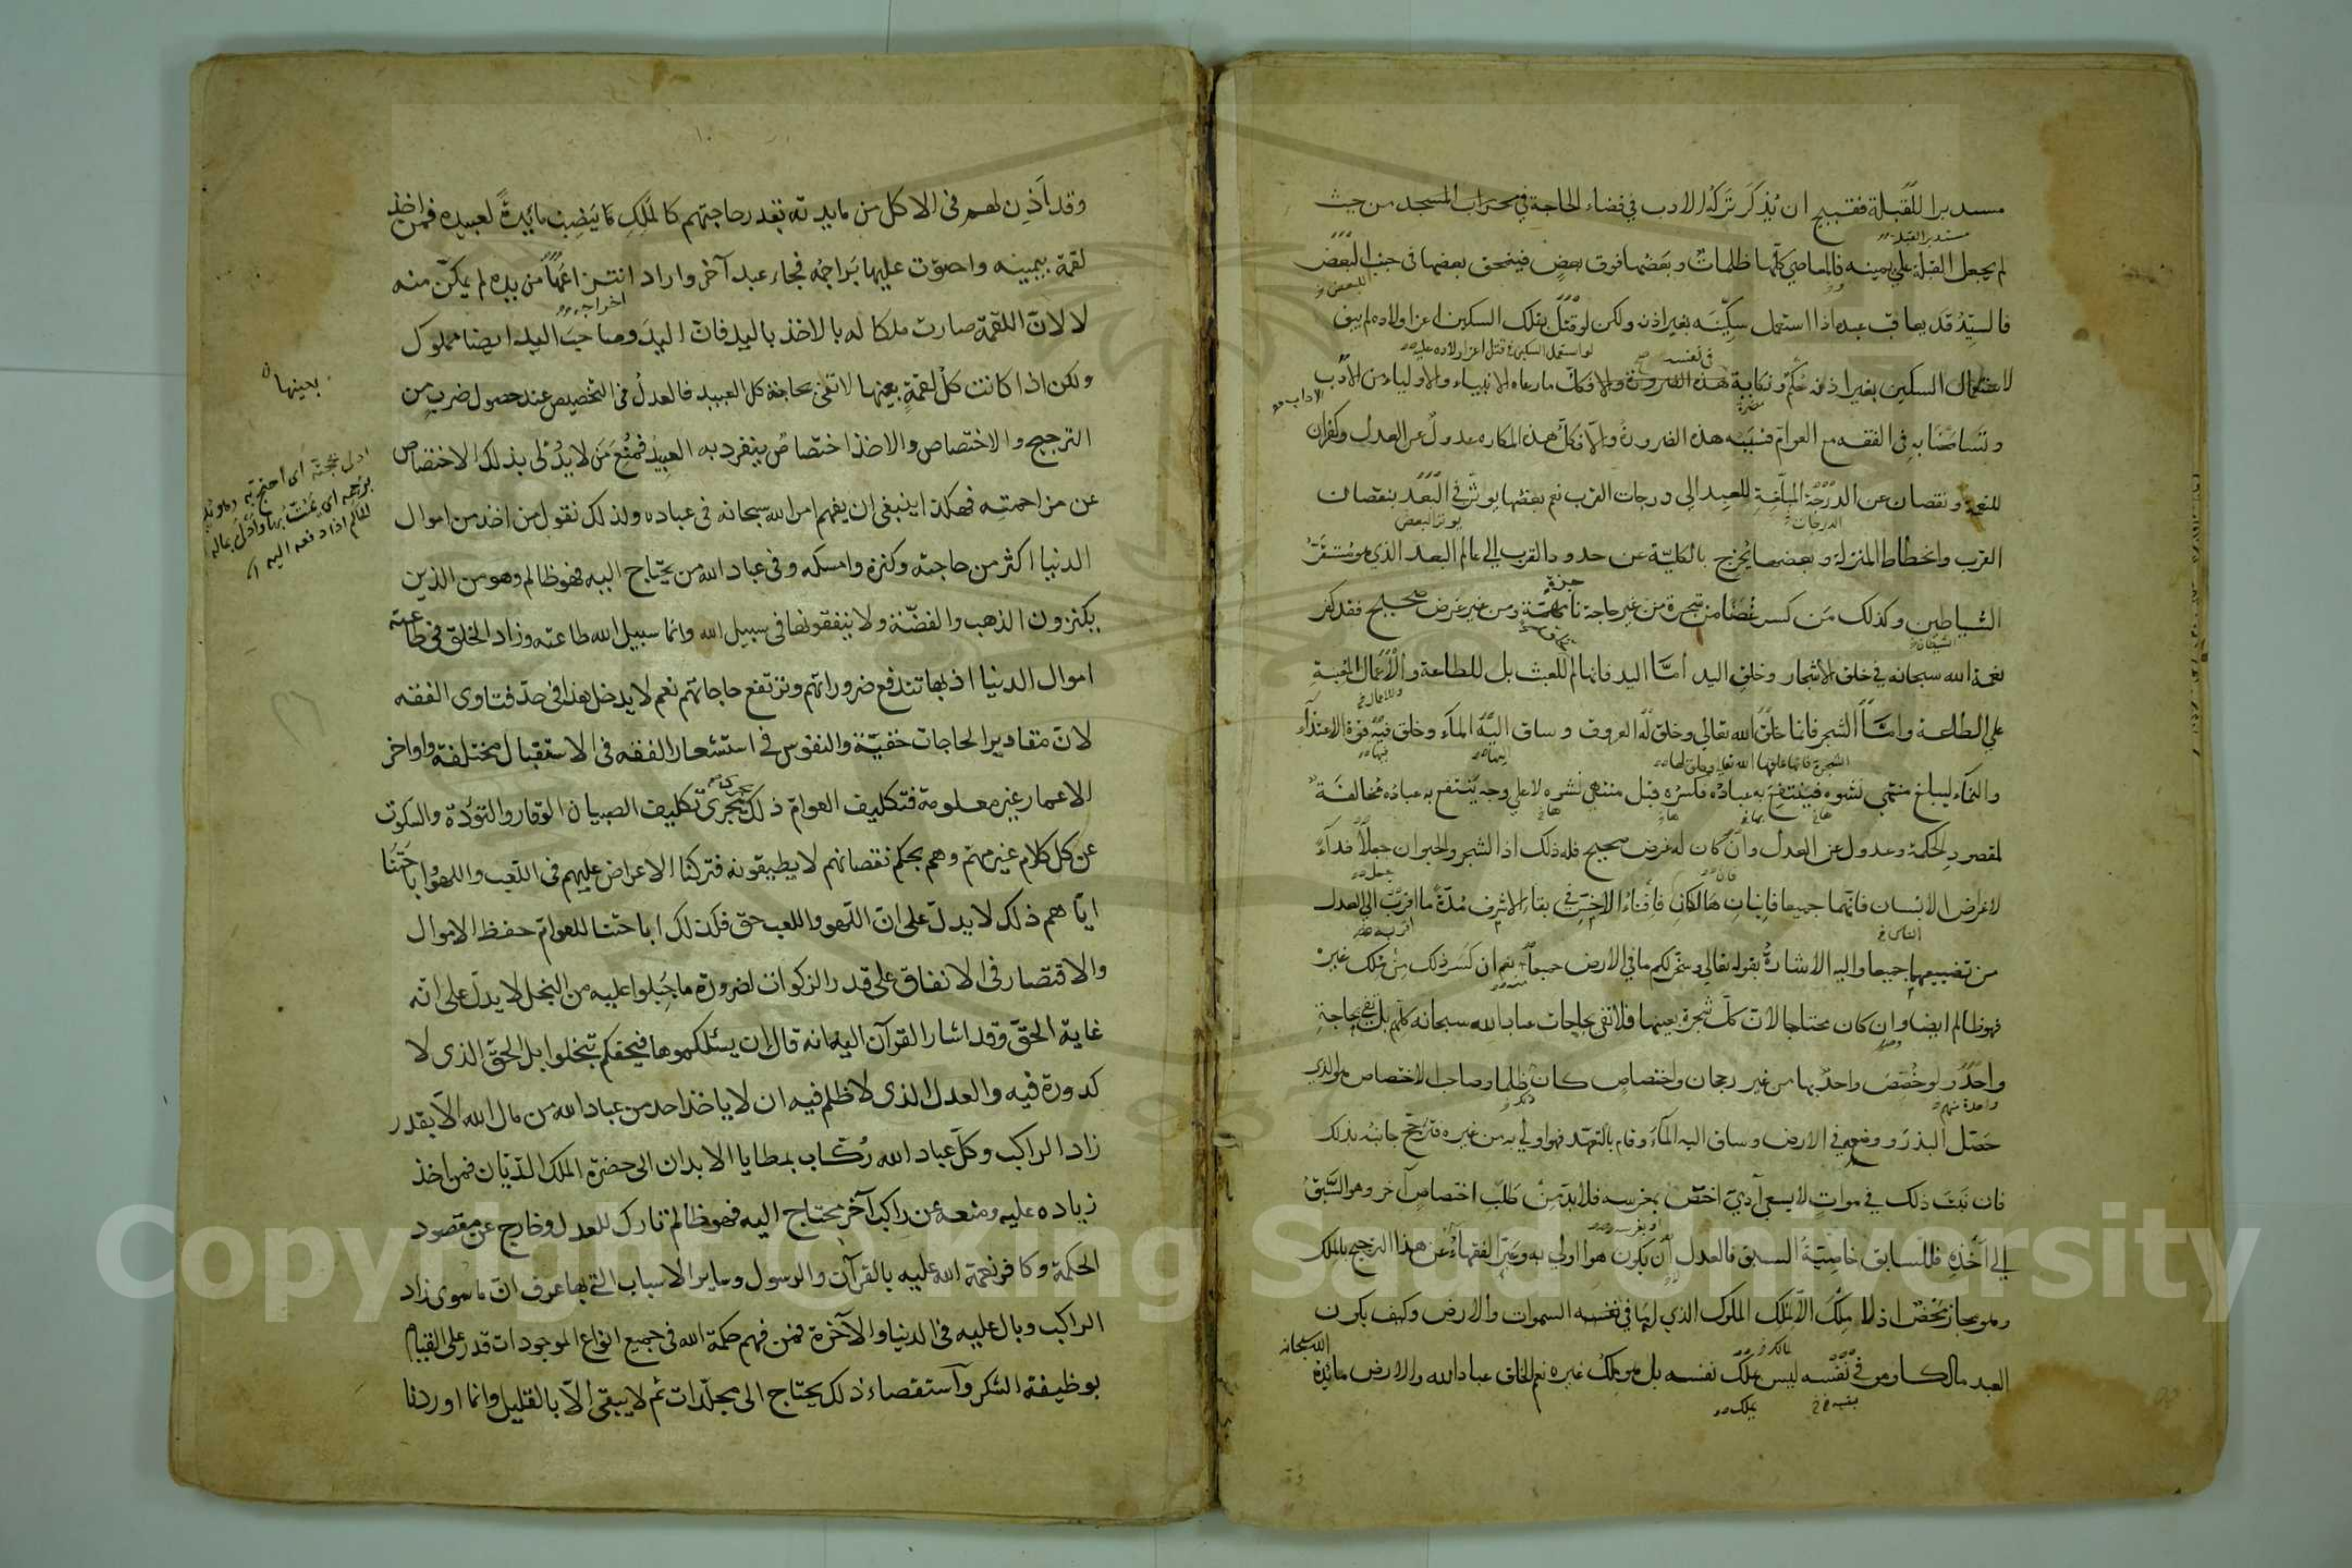 مستدبرا للقبلة فقبيح ان يُذكَر تركه الادب في قضاء الحاجة في محراب المسجد من حيث
مستدبر القبلة
لم يجعل القبلة على يمينه فالمعاصي كلّها ظلمات وبعضها فوق بعض فينمحق بعضها في جنب البعض
فالسيّد قد يعاقب عبده اذا استعمل سكّينه بغير اذنه ولكن لو قتل بتلك السكين اعز اولاده لم يبق
لو استعمل السكين في قتل اعز اولاده عليه
في نفسه
لاستعمال السكين بغير اذنه حُكمٌ ونكاية هذه الضرورة والا فكلّ ما رعاه الانبياء والاولياء من الادب
الاداب
وتسامحنا به في الفقه مع العوام فسببه هذه الضرورة والّا فكلّ هذه المكاره عدولٌ عن العدل وكفران
للنعمة ونقصان عن الدرجة المبلّغة للعبد الى درجات القرب نعم بعضها يوثر في العبد بنقصان
الدرجات
يوثر البعض
القرب وانحطاط المنزلة وبعضها يُخرج بالكليّة عن حدود القرب الى عالم البعد الذي هو مستقرّ
الشياطين وكذلك مَن كسر غُصنا من شجرة من غير حاجة ناجزة مهمّة ومن غير غرض صحيح فقد كفر
الشيطان
نعمة الله سبحانه في خلق الاشجار وخلق اليد أمّا اليد فانها لم للعبث بل للطاعة والاعمال المعينة
وللاعمال
على الطاعة وامّا الشجر فانما خلق الله تعالى وخلق له العروق وساق اليه الماء وخلق فيه قوة الاغتذاء
الشجرة فانما خلقها الله تعالى وخلق لها
اليها
فيها
والنماء ليبلغ منتهى نشوه فينتفع به عباده فكسره قبل منتهى نشوه لا على وجه ينتفع به عباده مخالفة
لمقصود الحكمة وعدول عن العدل وان كان له غرض صحيح فله ذلك اذ الشجر والحيوان جعلا فداءً
لاغراض الانسان فانّهما جميعا فانيان هالكان فأفناء الاخسّ في بقاء الاشرف مدّة ما اقرب الى العدل
الناس
من تضييعهما جميعا واليه الاشارة بقوله تعالى وسخّر لكم ما في الارض جميعا نعم ان كسر ذلك من ملك غيره
فهو ظالم ايضا وان كان محتاجا لانّ كلّ شجرة بعينها فلا تفى بحاجات عباد الله سبحانه كلهم بل تفى بحاجة
واحد ولو خُصّص واحدٌ بها من غير رجحان واختصاص كان ظلما وصاحب الاختصاص هو الذي
حَصّل البذر ووضعه في الارض وساق اليه الماء وقام بالتعهّد فهو اولى به من غيره فترجّح جانبه بذلك
فان نَبتَ ذلك في موات لا بسعي آدمي اختصّ بغرسه فلا بدّ من طلب اختصاص آخر وهو السَّبق
او بغرسه
إلى أخذه فللسابق خاصيّة السبق فالعدل أن يكون هو اولى به وعبّر الفقهاء عن هذا الترجيح بالملك
وهو مجاز محض اذ لا ملك الّا لملك الملوك الذي له ما في السموات والارض وكيف يكون
العبد مالكا وهو في نفسه ليس يملك نفسه بل هو ملك غيره نعم الخلق عباد الله والارض مائدة
الله سبحانه
يملك
وقد أذِن لهم في الاكل من مايدته بقدر حاجتهم كالمَلِكِ ينصب مائدةً لعبيده فمن اخذ
لقمة بيمينه واحتوت عليها بَراجمُه فجاء عبد آخر واراد انتزاعها من يده لم يمكّن منه
اخراجه
لا لانّ اللقمة صارت ملكا له بالاخذ باليد فانّ اليدَ وصاحبَ اليد ايضا مملوك
ولكن اذا كانت كلّ لقمةٍ بعينها لا تفى بحاجة كل العبيد فالعدلُ في التخصيص عند حصول ضربٍ من
بعينها
الترجيح والاختصاص والاخذ اختصاصٌ ينفرد به العبيد فمُنِعَ مَن لا يُدْلي بذلك الاختصاص
ادلى بحجّته أى احتج به
عن مزاحمته فهكذا ينبغي ان يفهم امر الله سبحانه في عباده ولذلك نقول من اخذ من اموال
الدنيا اكثر من حاجته وكنزه وامسكه وفي عباد الله من يحتاج اليه فهو ظالم وهو من الذين
يكنزون الذهب والفضّة ولا ينفقونها في سبيل الله وانما سبيل الله طاعته وزاد الخلق في طاعته
اموال الدنيا اذ بها تندفع ضروراتهم وترتفع حاجاتهم نعم لا يدخل هذا في حدّ فتاوى الفقه
لانّ مقادير الحاجات خفيّة والنفوس في استشعار الفقه في الاستقبال مختلفة واواخر
الاعمار غير معلومة فتكليف العوام ذلك يجرى تكليف الصبيان الوقار والتؤدة والسكوت
عن كل كلام غير مهم وهم بحكم نقصانهم لا يطيقونه فتركنا الاعراض عليهم في اللعب واللهو واباحتنا
ايّاهم ذلك لا يدلّ على انّ اللهو واللعب حق فكذلك اباحتنا للعوام حفظ الاموال
والاقتصار في الانفاق على قدر الزكوات لضرورة ما جُبلوا عليه من البخل لا يدلّ على انّه
غاية الحقّ وقد اشار القرآن اليه انه قال ان يسئلكموها فيحفكم تبخلوا بل الحقّ الذي لا
كدورة فيه والعدل الذي لا ظلم فيه ان لا ياخذ احد من عباد الله من مال الله الّا بقدر
زاد الراكب وكلّ عباد الله رُكّاب بمطايا الابدان الى حضرة الملك الديّان فمن اخذ
زياده عليه ومنعه عن راكب آخر محتاج اليه فهو ظالم تارك للعدل وخارج عن مقصود
الحكمة وكافر نعمة الله عليه بالقرآن والرسول وساير الاسباب التي بها عرف انّ ما سوى زاد
الراكب وبال عليه في الدنيا والآخرة فمن فهم حكمة الله في جميع انواع الموجودات قدر على القيام
بوظيفة الشكر واستقصاء ذلك يحتاج الى مجلّدات ثم لا يبقى الّا بالقليل وانما اوردنا
Copyright © King Saud University
1957